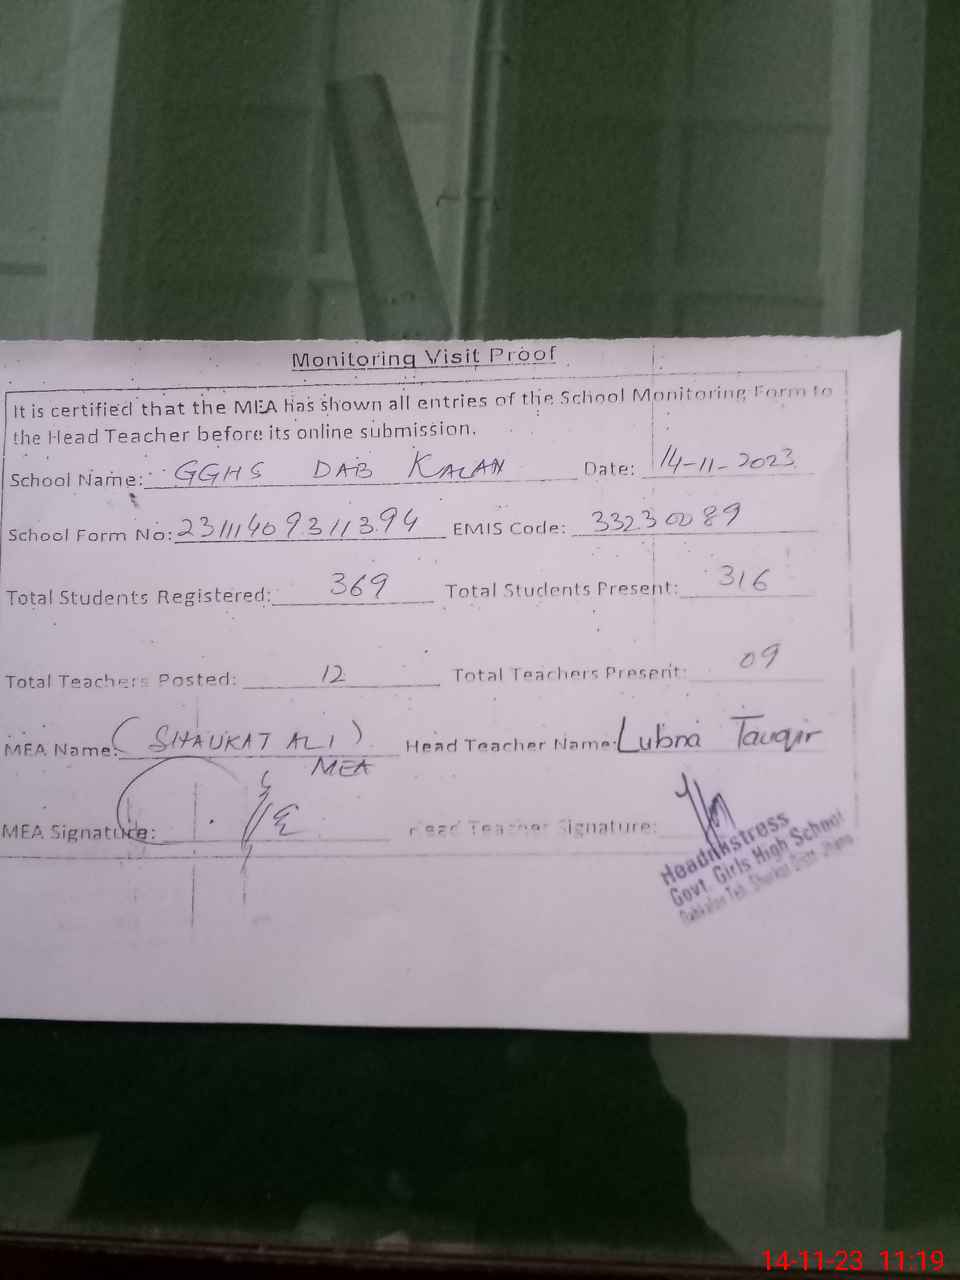 Monitoring Visit Proof
It is certified that the MEA has shown all entries of the School Monitoring Form to
the Head Teacher before its online submission.
School Name: GGHS DAB KALAN Date: 14-11-2023
School Form No: 23111409311394 EMIS Code: 33230089
Total Students Registered: 369 Total Students Present: 316
Total Teachers Posted: 12 Total Teachers Present: 09
MEA Name: (SHAUKAT ALI) Head Teacher Name: Lubna Tauqir
MEA
MEA Signature: Head Teacher Signature:
Headmistress
Govt. Girls High School
14-11-23 11:19